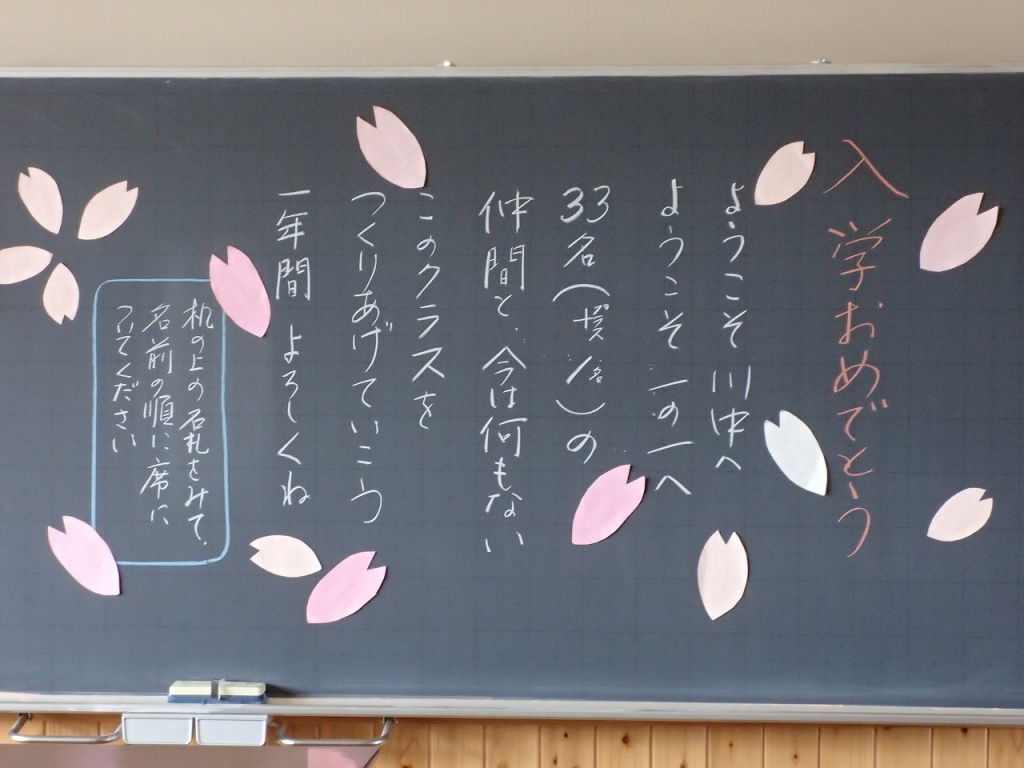 入学おめでとう
ようこそ 川中へ
ようこそ 一の一へ
33名(+賛1名)の
仲間と、今は何もない
このクラスを
つくりあげていこう
一年間 よろしくね
机の上の名札をみて、
名前の順に、席に
ついてください